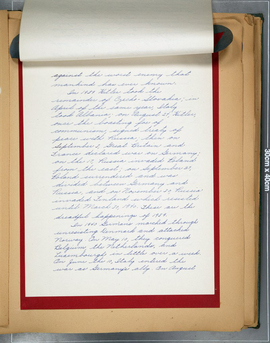 against the worst enemy that
mankind has ever known.
In 1939 Hitler took the
remainder of Czecho-Slovakia, in
April of the same year, Italy
took Albania; on August 23, Hitler,
over the boasting foe of
communism, signed treaty of
peace with Russia; then on
September 3, Great Britain and
France declared war on Germany;
on the 17, Russia invaded Poland
from the east; on September 27,
Poland surrendered and was
divided between Germany and
Russia; and on November 30, Russia
invaded Finland which resisted
until March 13, 1940. These are the
dreadful happenings of 1939.
In 1940 Germans marched through
unresisting Denmark and attacked
Norway. On May 10, they conquered
Belgium, the Netherlands, and
Luxembourg in little over a week.
On June the 10, Italy entered the
war as Germany's ally. On August
30cm x 40cm